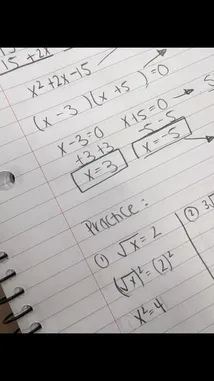 15 + 2x
x² + 2x - 15
(x - 3)(x + 5) = 0
x - 3 = 0 x + 5 = 0
+3 +3 -5 -5
x = 3 x = -5
Practice:
① √x = 2 ②
(√x)² = (2)²
x² = 4